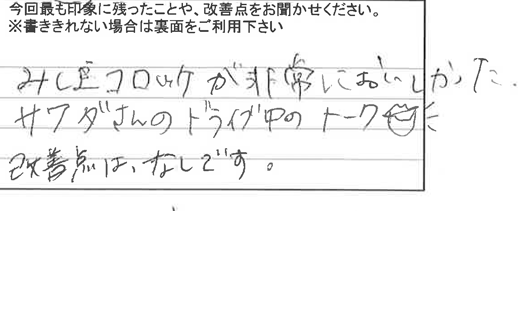 今回最も印象に残ったことや、改善点をお聞かせください。
※書ききれない場合は裏面をご利用下さい
コロッケが非常においしかった。
サワダさんのドライブ中のトーク
改善点は、なしです。